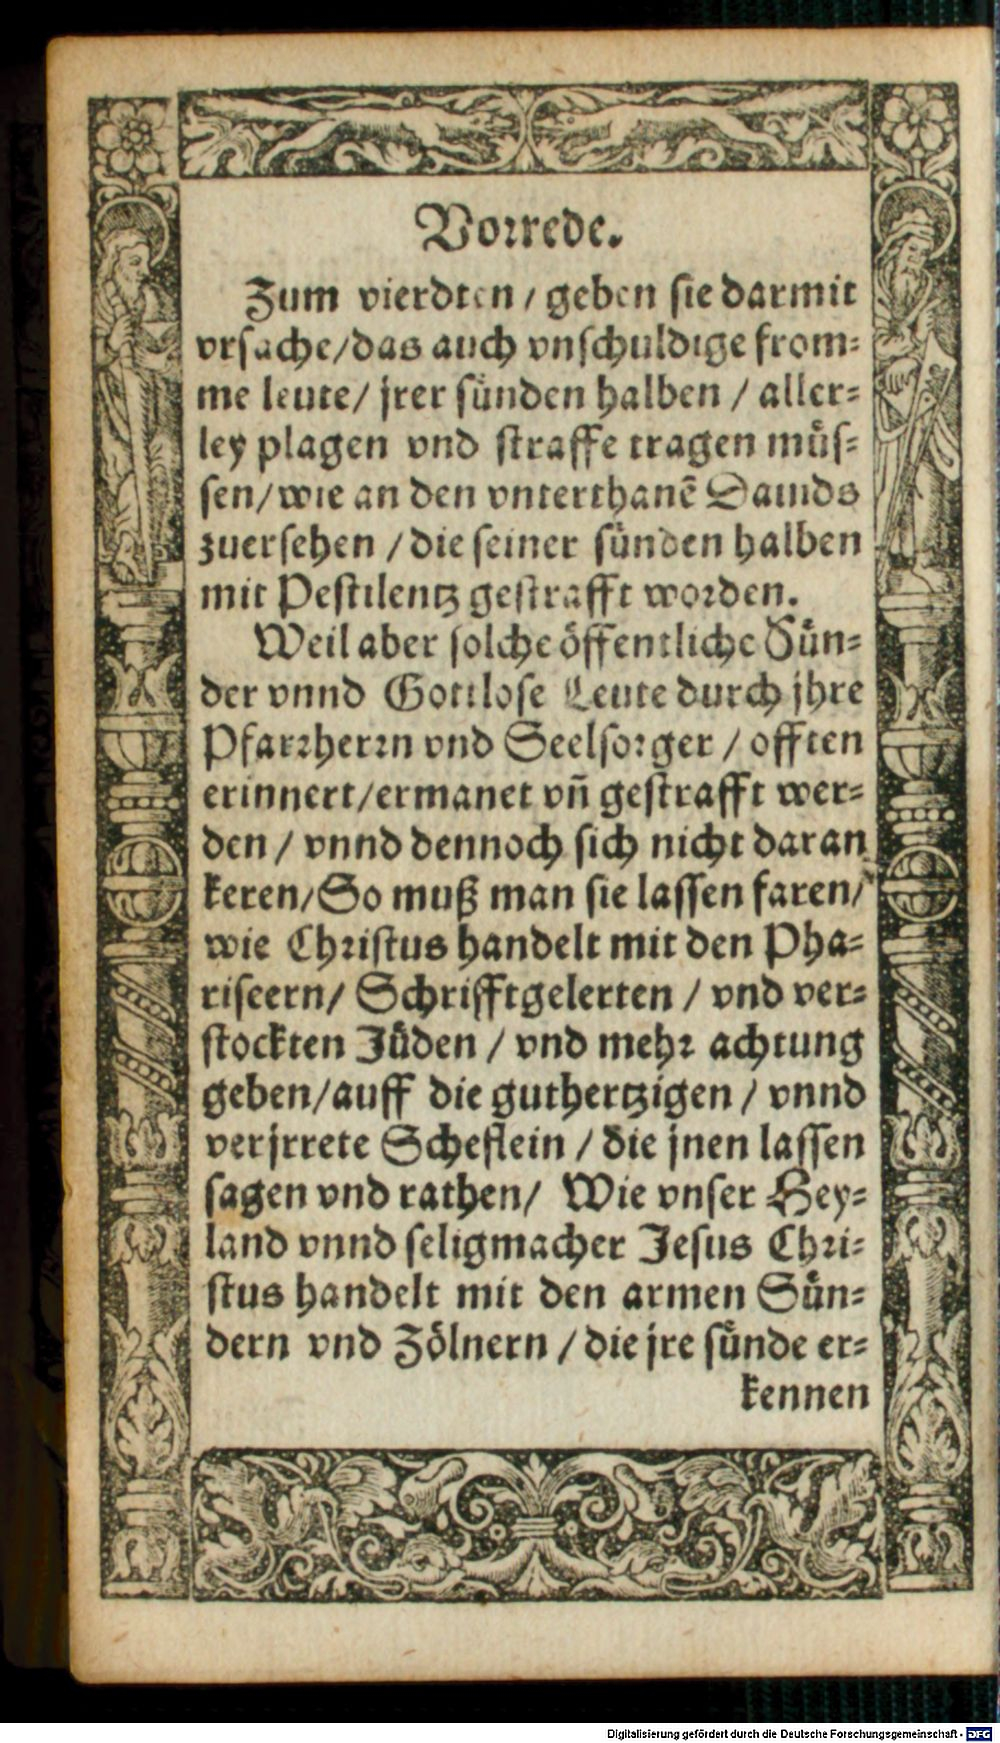 Vorrede.
Zum vierdten / geben sie darmit
vrsache/das auch vnschuldige from-
me leute/ jrer sünden halben / aller-
ley plagen vnd straffe tragen müs-
sen/wie an den vnterthanẽ Dauids
zuersehen / die seiner sünden halben
mit Pestilentz gestrafft worden.
Weil aber solche öffentliche Sün-
der vnnd Gottlose Leute durch jhre
Pfarrherrn vnd Seelsorger / offten
erinnert/ermanet vñ gestrafft wer-
den / vnnd dennoch sich nicht daran
keren/So muß man sie lassen faren/
wie Christus handelt mit den Pha-
riseern/ Schrifftgelerten / vnd ver-
stockten Jüden / vnd mehr achtung
geben/auff die guthertzigen / vnnd
verjrrete Scheflein / die jnen lassen
sagen vnd rathen/ Wie vnser Hey-
land vnnd seligmacher Jesus Chri-
stus handelt mit den armen Sün-
dern vnd Zölnern / die jre sünde er-
kennen
Digitalisierung gefördert durch die Deutsche Forschungsgemeinschaft - DFG